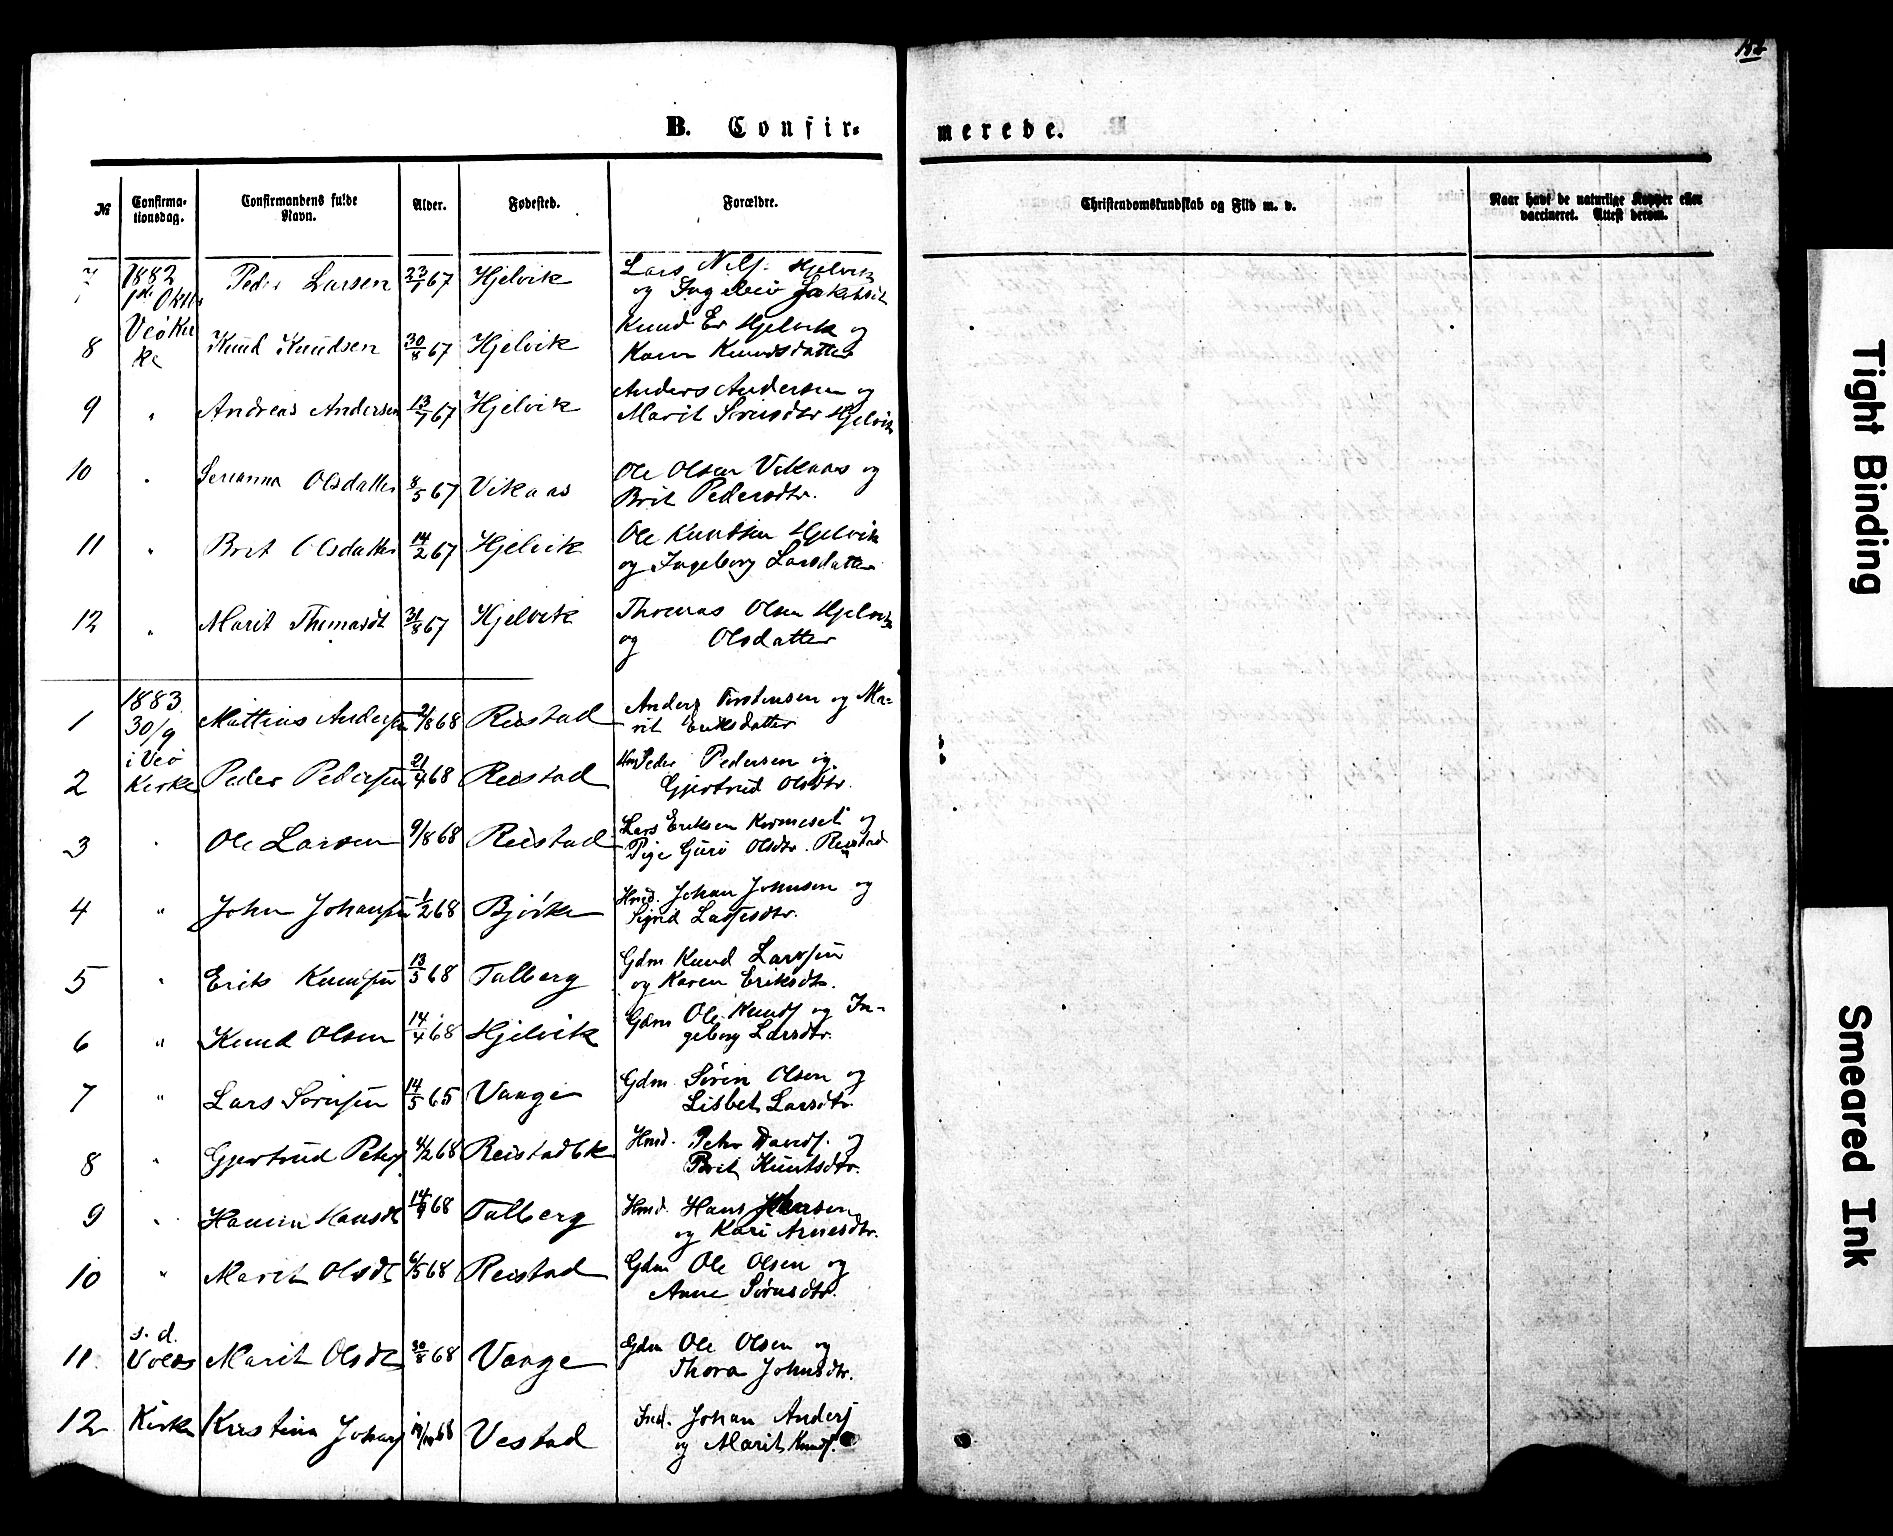 B. Confir-
merede.
№
Confirma-
tionsdag.
Confirmandens fulde
Navn.
Alder.
Fødested.
Forældre.
Christendomskundskab og Flid m. v.
Naar havt de naturlige Kopper eller
vaccineret. Attest derom.
7 1882 Peder Larsen 23/1 67 Hjelvik Lars Nils. Hjelvik
og Ingebor
8 Veø Kir
ke Knud Knudsen 30/8 67 Hjelvik Knud Er Hjelvik og
Karen Knudsdatter
9 " Andreas Andersen 13/7 67 Hjelvik Anders Andersen og
Marit Sørensdtr Hjelvik
10 " Serianna Olsdatter 8/5 67 Vikaas Ole Olsen Vikaas og
Brit Pedersdtr.
11 " Brit Olsdatter 14/2 67 Hjelvik Ole Knudsen Hjelvik
og Ingeborg Larsdatter
12 " Marit Thomasdt 31/8 67 Hjelvik Thomas Olsen Hjelvik
og Olsdatter
1 1883
30/9 Mattias Andersen 2/8 68 Reistad Anders Torstensen og Ma-
rit Eriksdatter
2 i Veø
Kirke Peder Pedersen 21/4 68 Reistad Peder Pedersen og
Gjertrud Olsdtr.
3 " Ole Larsen 9/8 68 Reistad Lars Eriksen og
Pige Guro Olsdtr. Reistad
4 " John Johansen 1/2 68 Bjørke Hmd. Johan Johnsen og
Sigrid Lassesdtr.
5 " Erik Knudsen 13/5 68 Talberg Gdm Knud Larssen
og Karen Eriksdtr.
6 " Knud Olsen 14/4 68 Hjelvik Gdm Ole Knuds og In-
geborg Larsdtr.
7 " Lars Sørensen 14/5 65 Vaage Gdm Søren Olsen og
Lisbet Larsdtr.
8 " Gjertrud Peters 4/2 68 Reistadbk Hmd. Peter Davids. og
Brit Knutsdtr.
9 " Hansdt 14/9 68 Talberg Hmd. Hans
og Kari Arnesdtr.
10 " Marit Olsdt 6/5 68 Reistad Gdm Ole Olsen og
Anne Sørensdtr.
11 s. d.
Volds Marit Olsdt 30/8 68 Vaage Gdm Ole Olsen og
Thora Johnsdtr.
12 Kirke Kristina Johans 68 Vestad Ind. Johan Anders
og Marit Knuds.
Tight Binding
Smeared Ink